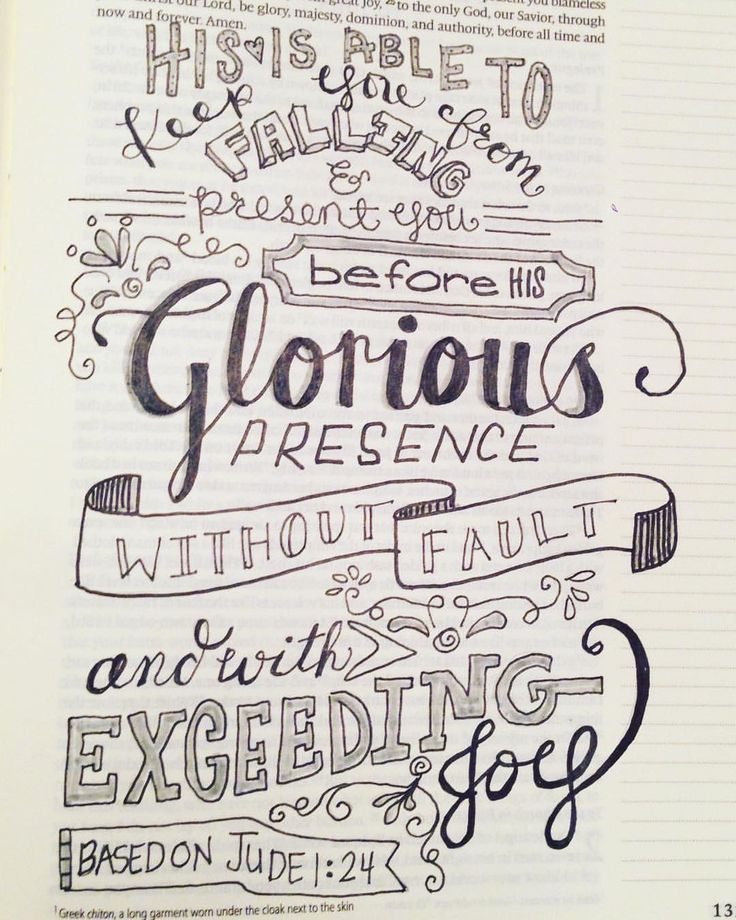 our Lord, be glory, majesty, dominion, and authority, before all time and
great joy, 25 to the only God, our Savior, through
now and forever. Amen.
HIS♥IS ABLE TO
keep you from
FALLING
&
present you
before HIS
Glorious
PRESENCE
WITHOUT FAULT
and with
EXGEEDING
Joy
BASED ON JUDE 1:24
1 Greek chiton, a long garment worn under the cloak next to the skin
13